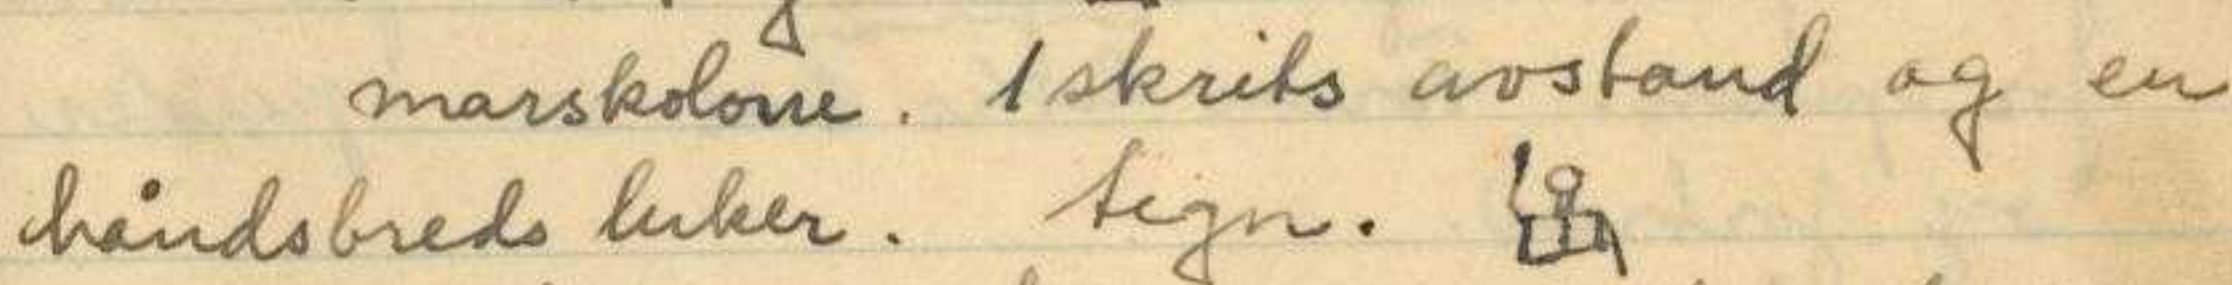 marskolonne. 1 skrits avstand og en
håndsbreds luker. Tegn.